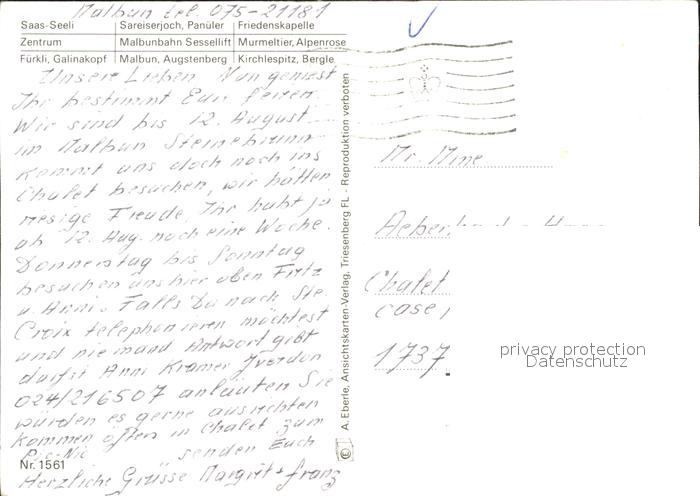 Malbun tel. 075-21181
Saas-Seeli Sareiserjoch, Panüler Friedenskapelle
Zentrum Malbunbahn Sessellift Murmeltier, Alpenrose
Fürkli, Galinakopf Malbun, Augstenberg Kirchlespitz, Bergle
Unsere Lieben Nun geniest
Ihr bestimmt Eur Ferien.
Wir sind bis 12. August
im Malbun Steinebrunn
Kommt uns doch noch ins
Chalet besuchen, wir hätten
riesige Freude. Ihr habt ja
ab 12. Aug. noch eine Woche.
Donnerstag bis Sonntag
besuchen uns hier oben Fritz
u. Anni. Falls Du nach Ste.
Croix telephonieren möchtest
und niemand Antwort gibt
darfst Anni Kramer Yverdon
024/216507 anläuten Sie
würden es gerne ausrichten
Kommen öfters in Chalet zum
Pic-Nic senden Euch
Nr. 1561
Herzliche Grüsse Margrit + Franz
A. Eberle, Ansichtskarten-Verlag, Triesenberg FL. - Reproduktion verboten
Mr. Mme
Chalet
case,
1737
privacy protection
Datenschutz